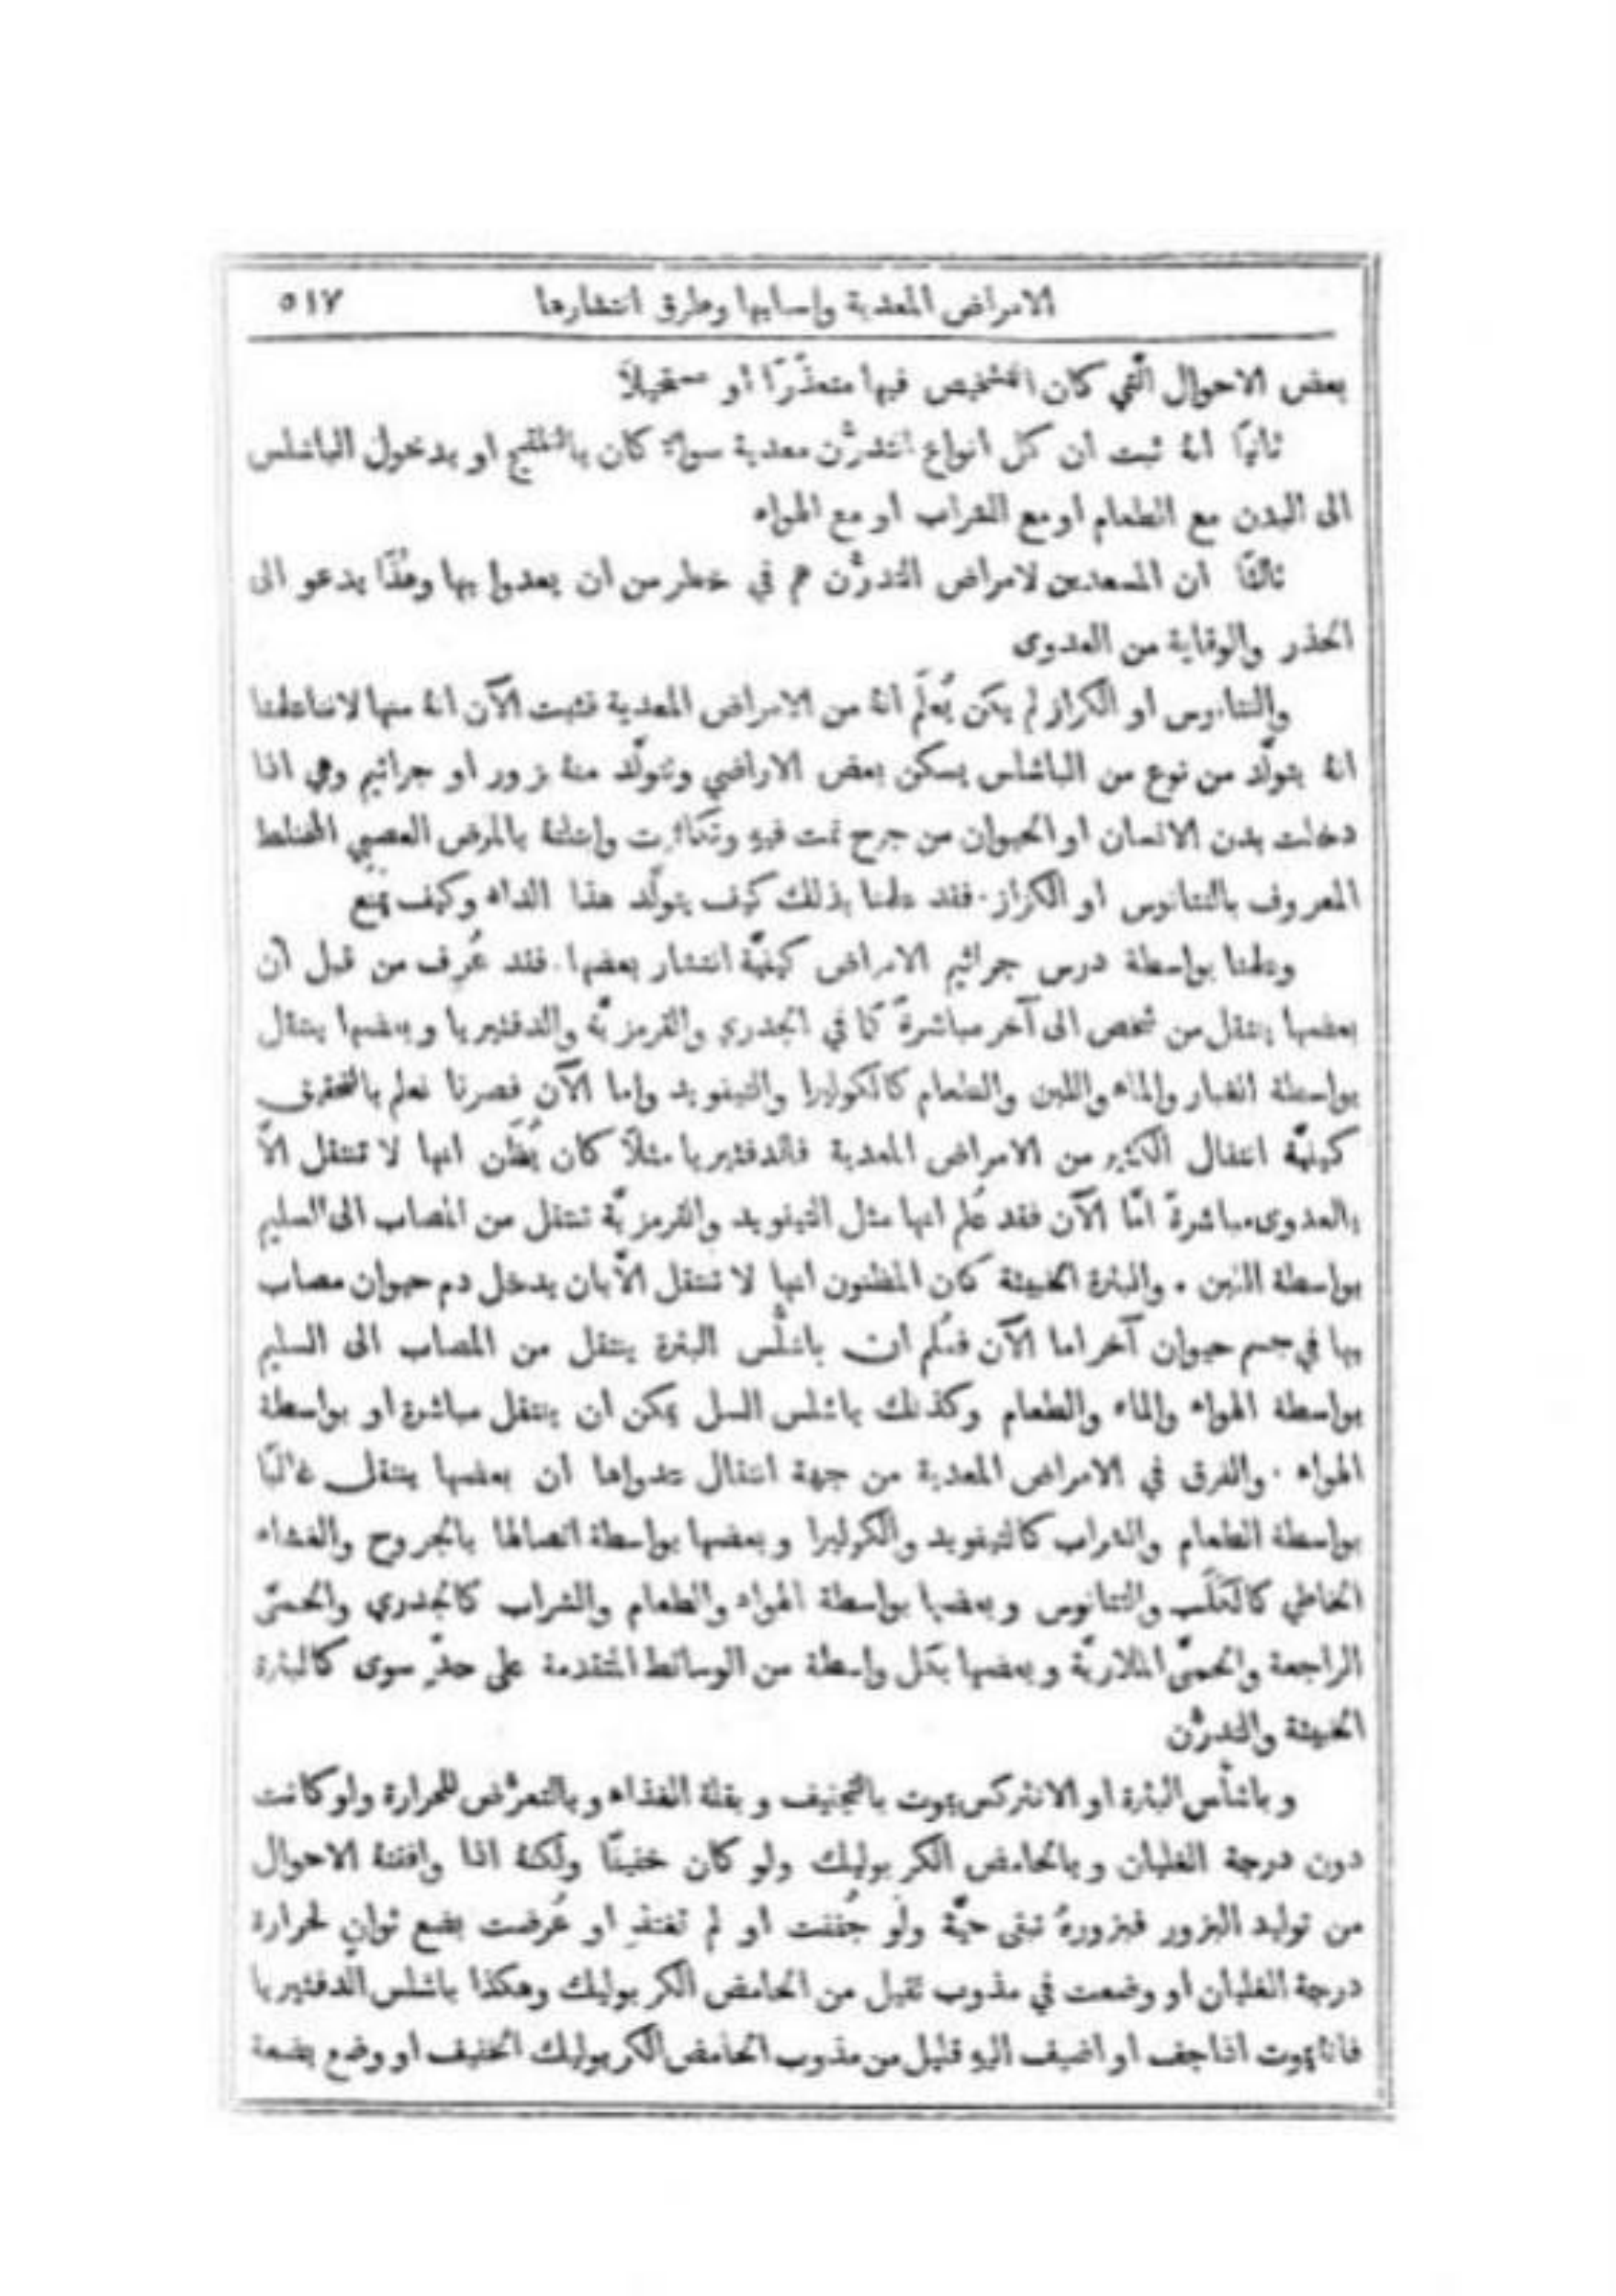 الامراض المعدية واسبابها وطرق انتشارها ٥١٧
بعض الاحوال التي كان التشخيص فيها متعذّرًا أو مستحيلاً
ثانيًا انهُ ثبت ان كل انواع التدرُّن معدية سواءٌ كان بالتلقيح او بدخول الباشلس
الى البدن مع الطعام او مع الشراب او مع الهواء
ثالثًا ان المستعدين لامراض التدرُّن هم في خطر من ان يعدوا بها وهٰذا يدعو الى
الحذر والوقاية من العدوى
والتتانوس او الكزاز لم يكن يُعلَم انهُ من الامراض المعدية فثبت الآن انهُ منها لاننا علمنا
انهُ يتولَّد من نوع من الباشلس يسكن بعض الاراضي وتتولَّد منهُ بزور او جراثيم وهي اذا
دخلت بدن الانسان او الحيوان من جرح نمت فيهِ وتكاثرت وابتلتهُ بالمرض العصبي
المعروف بالتتانوس او الكزاز. فقد علمنا بذلك كيف يتولَّد هذا الداء وكيف يمنع
وعلمنا بواسطة درس جراثيم الامراض كيفيَّة انتشار بعضها. فقد عُرِف من قبل أن
بعضها ينتقل من شخص الى آخر مباشرةً كما في الجدري والقرمزيَّة والدفثيريا وبعضها ينتقل
بواسطة الغبار والماء واللبن والطعام كالكوليرا والتيفويد واما الآن فصرنا نعلم بالتحقيق
كيفيَّة انتقال الكثير من الامراض المعدية فالدفثيريا مثلاً كان يُظَن انها لا تنتقل الاَّ
بالعدوى مباشرةً امَّا الآن فقد عُلم انها مثل التيفويد والقرمزيَّة تنتقل من المصاب الى السليم
بواسطة اللبن. والبثرة الخبيثة كان المظنون انها لا تنتقل الاَّ بان يدخل دم حيوان مصاب
بها في جسم حيوان آخر اما الآن فعُلم ان باشلُّس البثرة ينتقل من المصاب الى السليم
بواسطة الهواء والماء والطعام وكذلك باشلس السل يمكن ان ينتقل مباشرة او بواسطة
الهواء. والفرق في الامراض المعدية من جهة انتقال عدواها ان بعضها ينتقل غالبًا
بواسطة الطعام والشراب كالتيفويد والكوليرا وبعضها بواسطة اتصالها بالجروح والغشاء
المخاطي كالكَلَب والتتانوس وبعضها بواسطة الهواء والطعام والشراب كالجدري والحمَّى
الراجعة والحمَّى الملاريَّة وبعضها بكل واسطة من الوسائط المتقدمة على حدٍّ سوى كالبثرة
الخبيثة والتدرُّن
وباشلُّس البثرة او الانثركس يموت بالتجفيف وبقلة الغذاء وبالتعرُّض للحرارة ولو كانت
دون درجة الغليان وبالحامض الكربوليك ولو كان خفيفًا ولكنهُ اذا وافقتهُ الاحوال
من توليد البزور فبزورهُ تبقى حيَّة ولو جُففت او لم تغتذِ او عُرضت بضع ثوانٍ لحرارة
درجة الغليان او وضعت في مذوب ثقيل من الحامض الكربوليك وهكذا باشلس الدفثيريا
فانهُ يموت اذا جف او اضيف اليهِ قليل من مذوب الحامض الكربوليك الخفيف او وضع بضعة